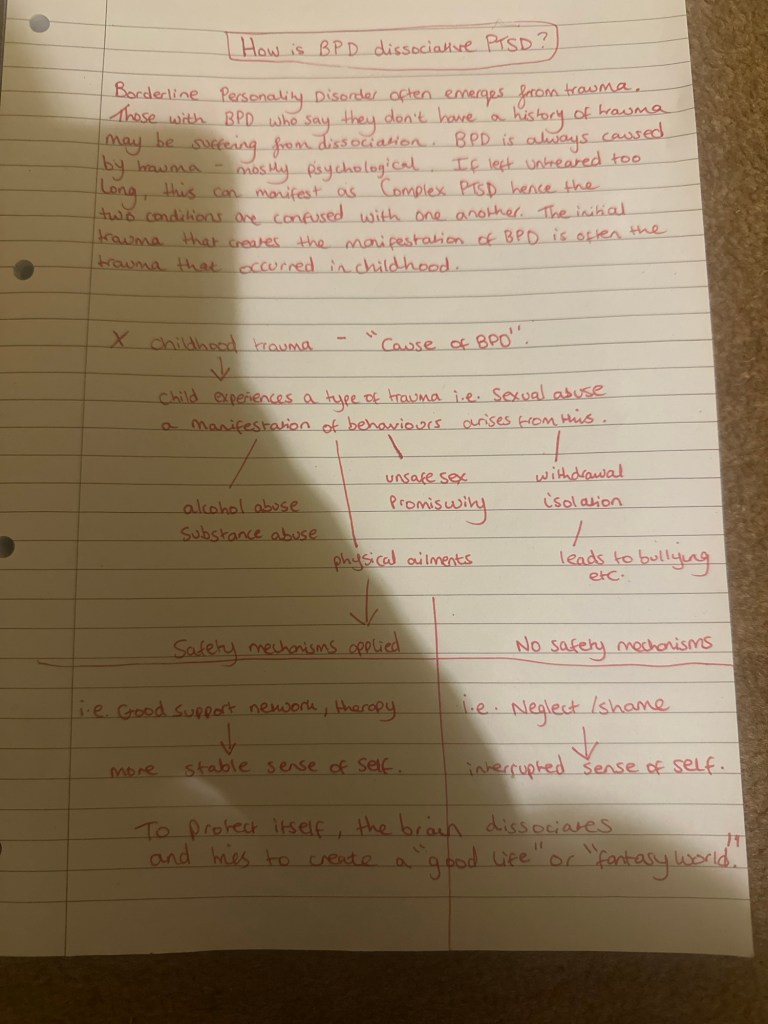 How is BPD dissociative PTSD?
Borderline Personality Disorder often emerges from trauma.
Those with BPD who say they don't have a history of trauma
may be suffering from dissociation. BPD is always caused
by trauma - mostly psychological. If left untreated too
long, this can manifest as Complex PTSD hence the
two conditions are confused with one another. The initial
trauma that creates the manifestation of BPD is often the
trauma that occurred in childhood.
X childhood trauma - "Cause of BPD".
child experiences a type of trauma i.e. sexual abuse
a manifestation of behaviours arises from this.
alcohol abuse
Substance abuse
physical ailments
unsafe sex
Promiscuity
withdrawal
isolation
leads to bullying
etc.
Safety mechanisms applied
i.e. Good support network, therapy
more stable sense of self.
No safety mechanisms
i.e. Neglect / shame
interrupted sense of self.
To protect itself, the brain dissociates
and tries to create a "good life" or "fantasy world."